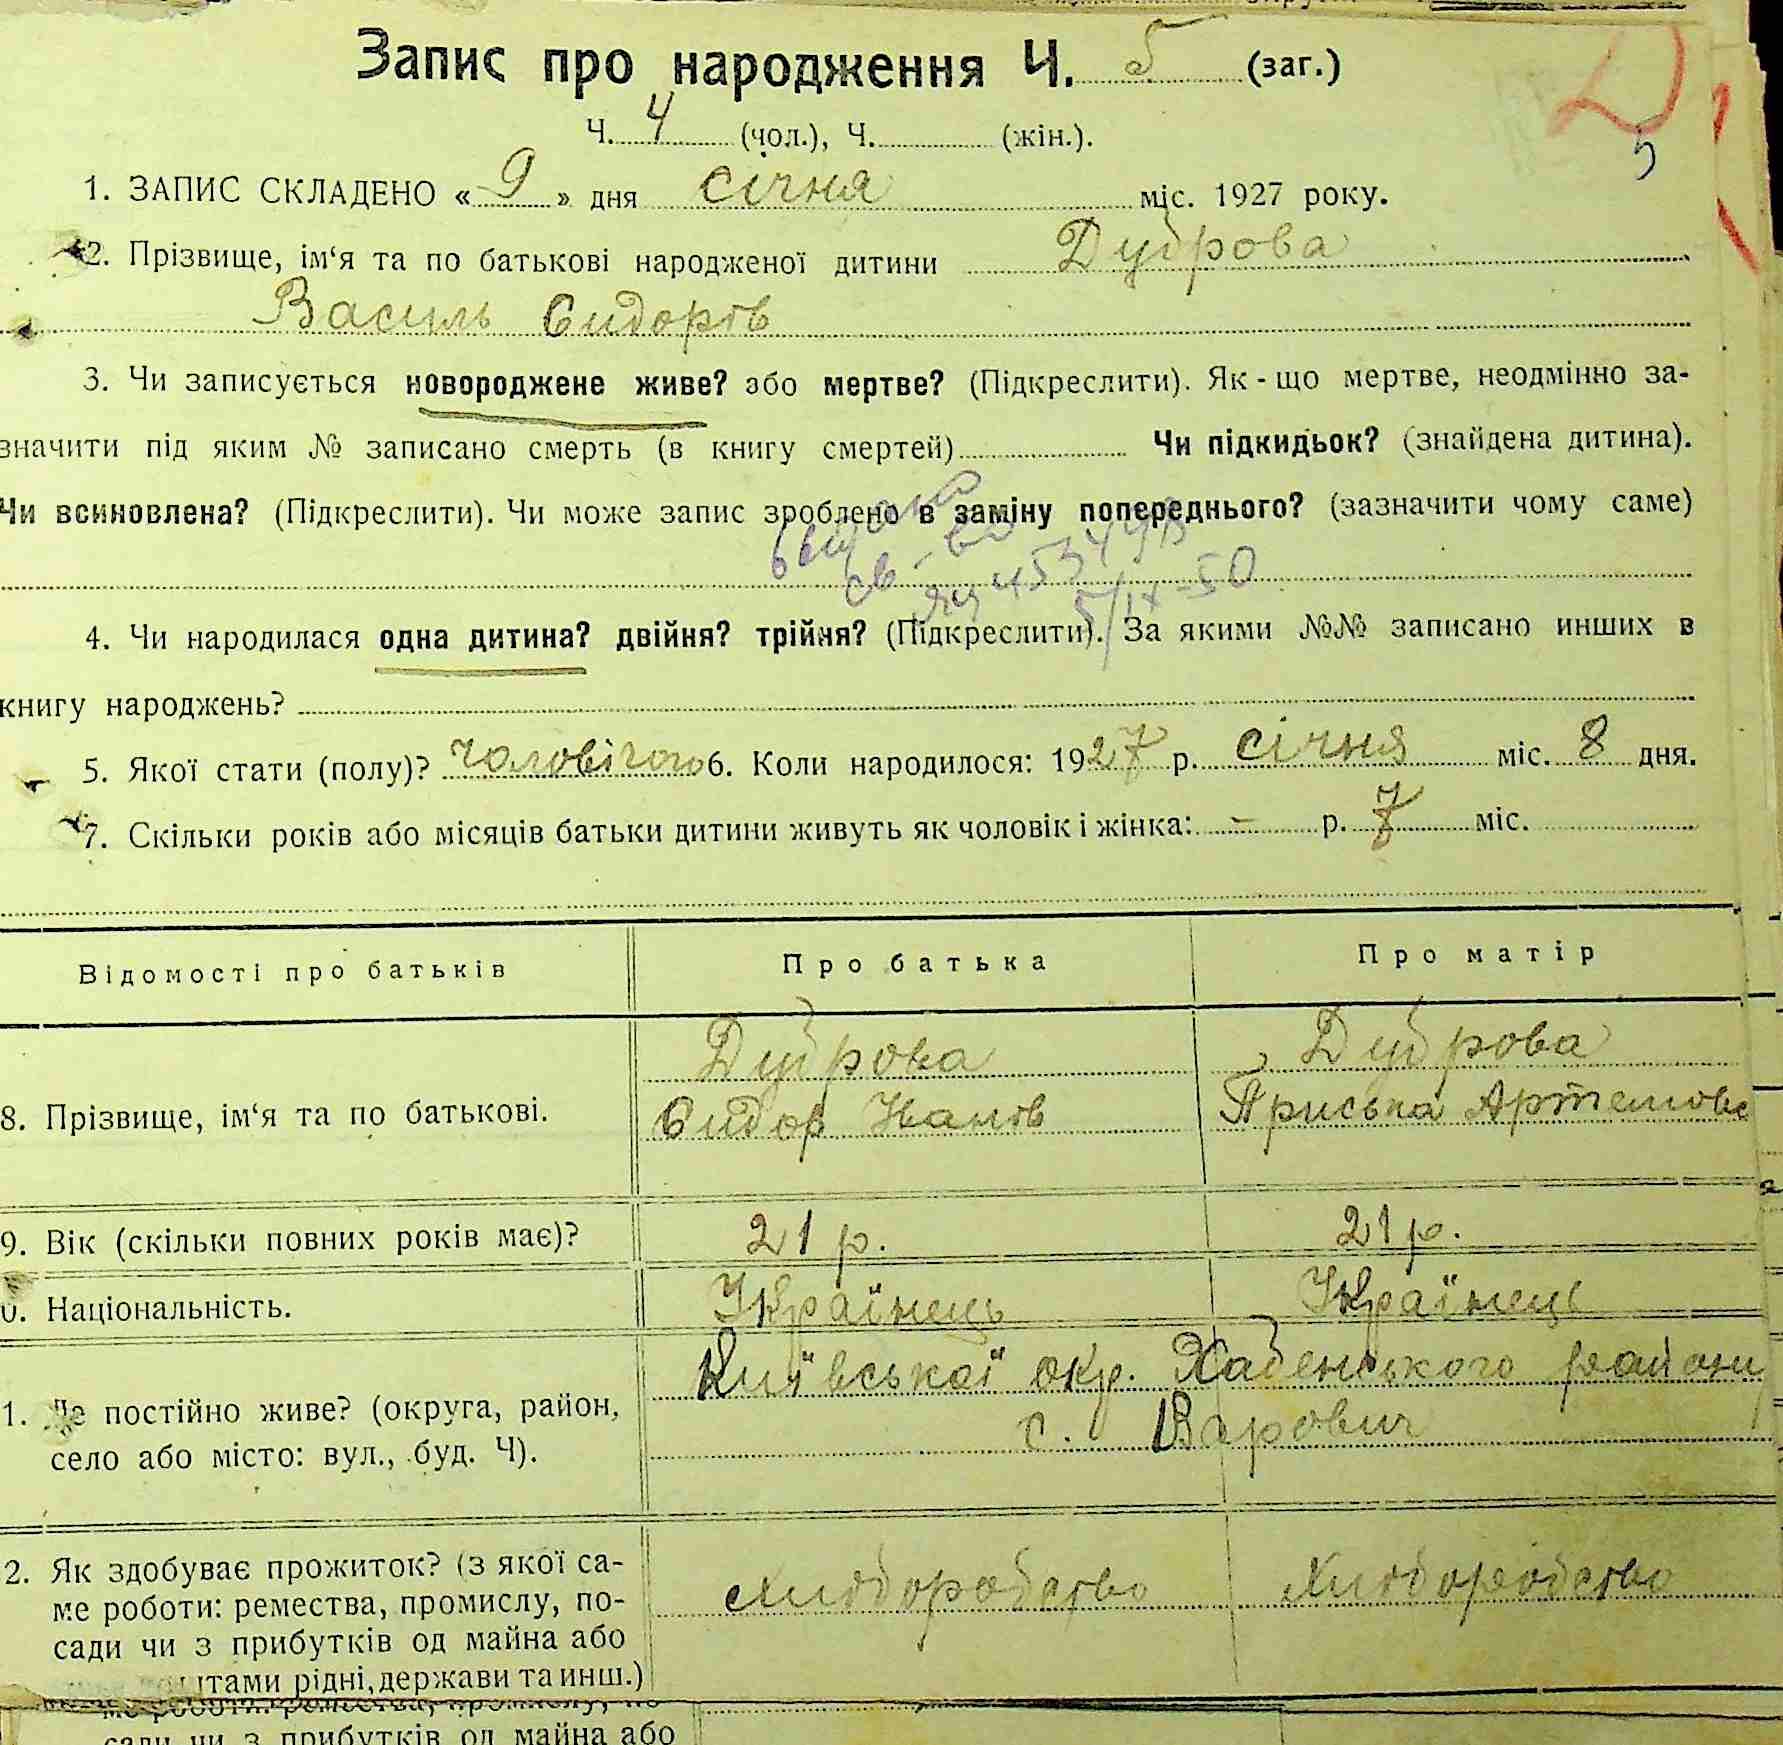 Запис про народження Ч. 5 (заг.)
Ч. 4 (чол.), Ч. (жін.).
5
1. ЗАПИС СКЛАДЕНО « 9 » дня січня міс. 1927 року.
2. Прізвище, ім‘я та по батькові народженої дитини Дуброва
Василь Сидорів
3. Чи записується новороджене живе? або мертве? (Підкреслити). Як-що мертве, неодмінно за-
значити під яким № записано смерть (в книгу смертей) Чи підкидьок? (знайдена дитина).
Чи всиновлена? (Підкреслити). Чи може запис зроблено в заміну попереднього? (зазначити чому саме)
св-во
5/IX-50
4. Чи народилася одна дитина? двійня? трійня? (Підкреслити). За якими №№ записано инших в
книгу народжень?
5. Якої стати (полу)? чоловічого 6. Коли народилося: 1927 р. січня міс. 8 дня.
7. Скільки років або місяців батьки дитини живуть як чоловік і жінка: – р. 7 міс.
Відомості про батьків Про батька Про матір
Дуброва Дуброва
8. Прізвище, ім‘я та по батькові. Сидор Іванів Приська Артемовс
9. Вік (скільки повних років має)? 21 р. 21 р.
0. Національність. Українець Українець
Київської окр. Хабенського району
1. Де постійно живе? (округа, район, с. Варович
село або місто: вул., буд. Ч).
2. Як здобуває прожиток? (з якої са- хліборобство хліборобство
ме роботи: ремества, промислу, по-
сади чи з прибутків од майна або
штами рідні, держави та инш.)
ме роботи: ремества, промислу, по
сади чи з прибутків од майна або